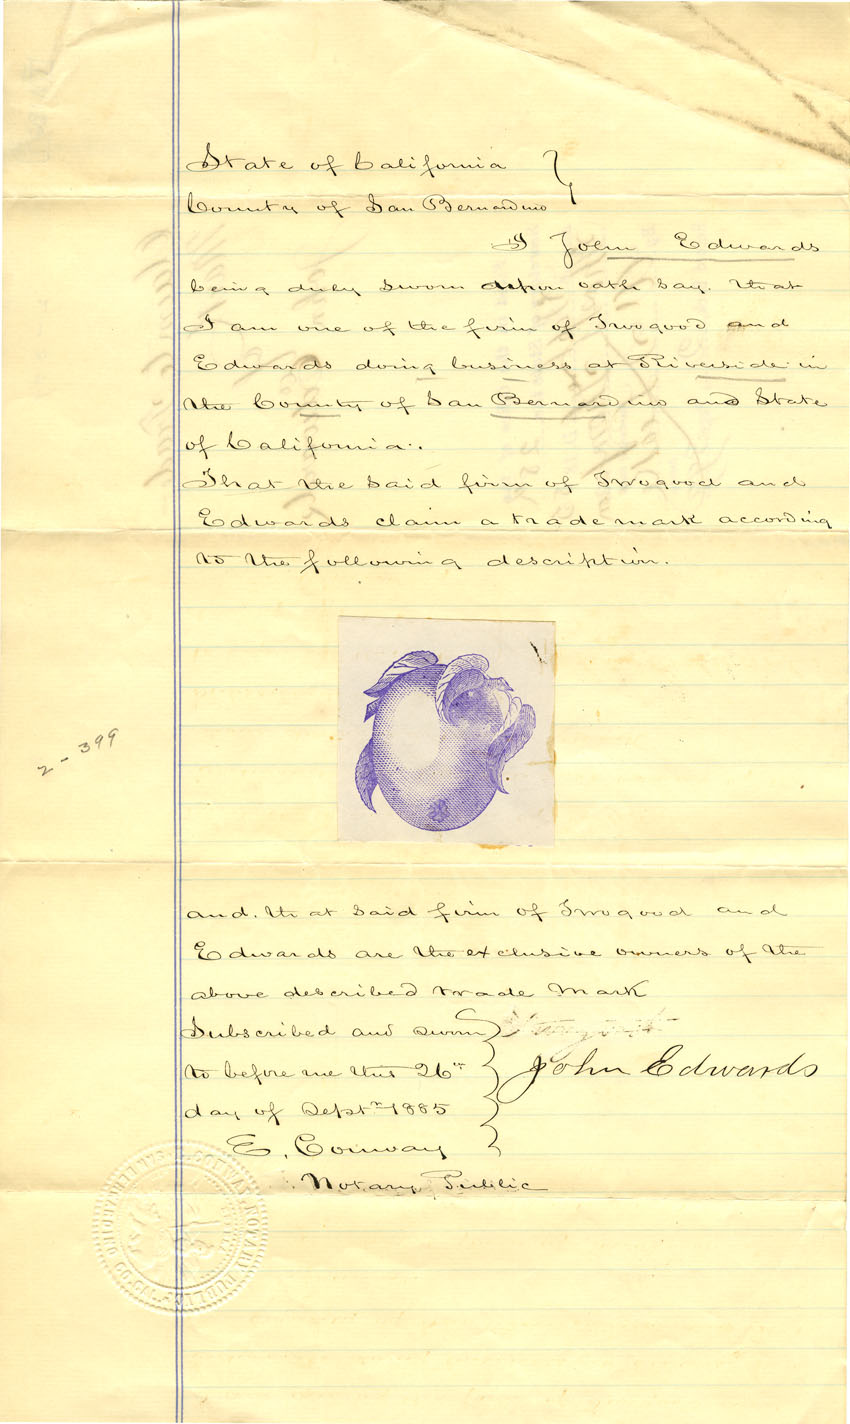 State of California
County of San Bernardino
I John Edwards
being duly sworn upon oath say. that
I am one of the firm of Twogood and
Edwards doing business at Riverside in
the County of San Bernardino and State
of California.
That the said firm of Twogood and
Edwards claim a trade mark according
to the following description.
2-399
and. that said firm of Twogood and
Edwards are the exclusive owners of the
above described trade mark
Subscribed and sworn
to before me this 26th
day of Septr 1885
John Edwards
E. Conway
Notary Public
E. CONWAY, NOTARY PUBLIC
SAN BERNARDINO CO. CAL.